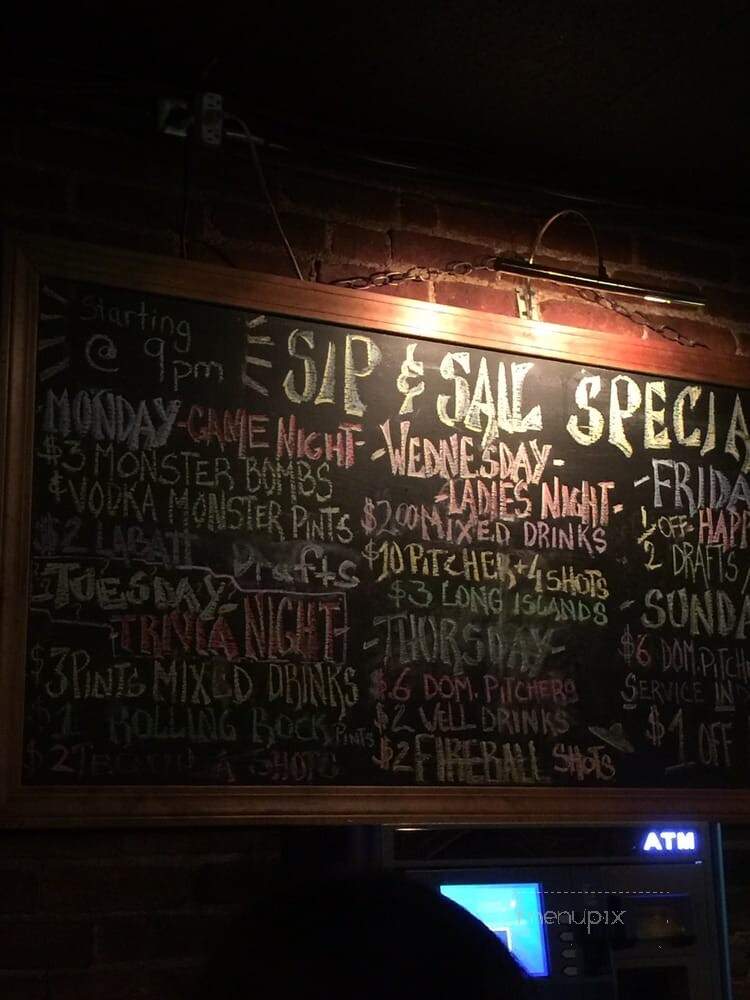 Starting
@ 9pm
SIP & SAIL SPECIA
MONDAY-GAME NIGHT-
$3 MONSTER BOMBS
& VODKA MONSTER PINTS
$2 LABATT Drafts
TUESDAY-
-TRIVIA NIGHT-
$3 PINTS MIXED DRINKS
$1 ROLLING ROCK PINTS
$2 SHOTS
-WEDNESDAY-
-LADIES NIGHT-
$2.00 MIXED DRINKS
$10 PITCHER+4 SHOTS
$3 LONG ISLANDS
-THURSDAY-
$6 DOM. PITCHERS
$2 WELL DRINKS
$2 FIREBALL SHOTS
-FRIDA
1/2 OFF HAPP
DRAFTS
-SUNDA
$6 DOM. PITCH
SERVICE IN
$1 OFF
ATM
menupix